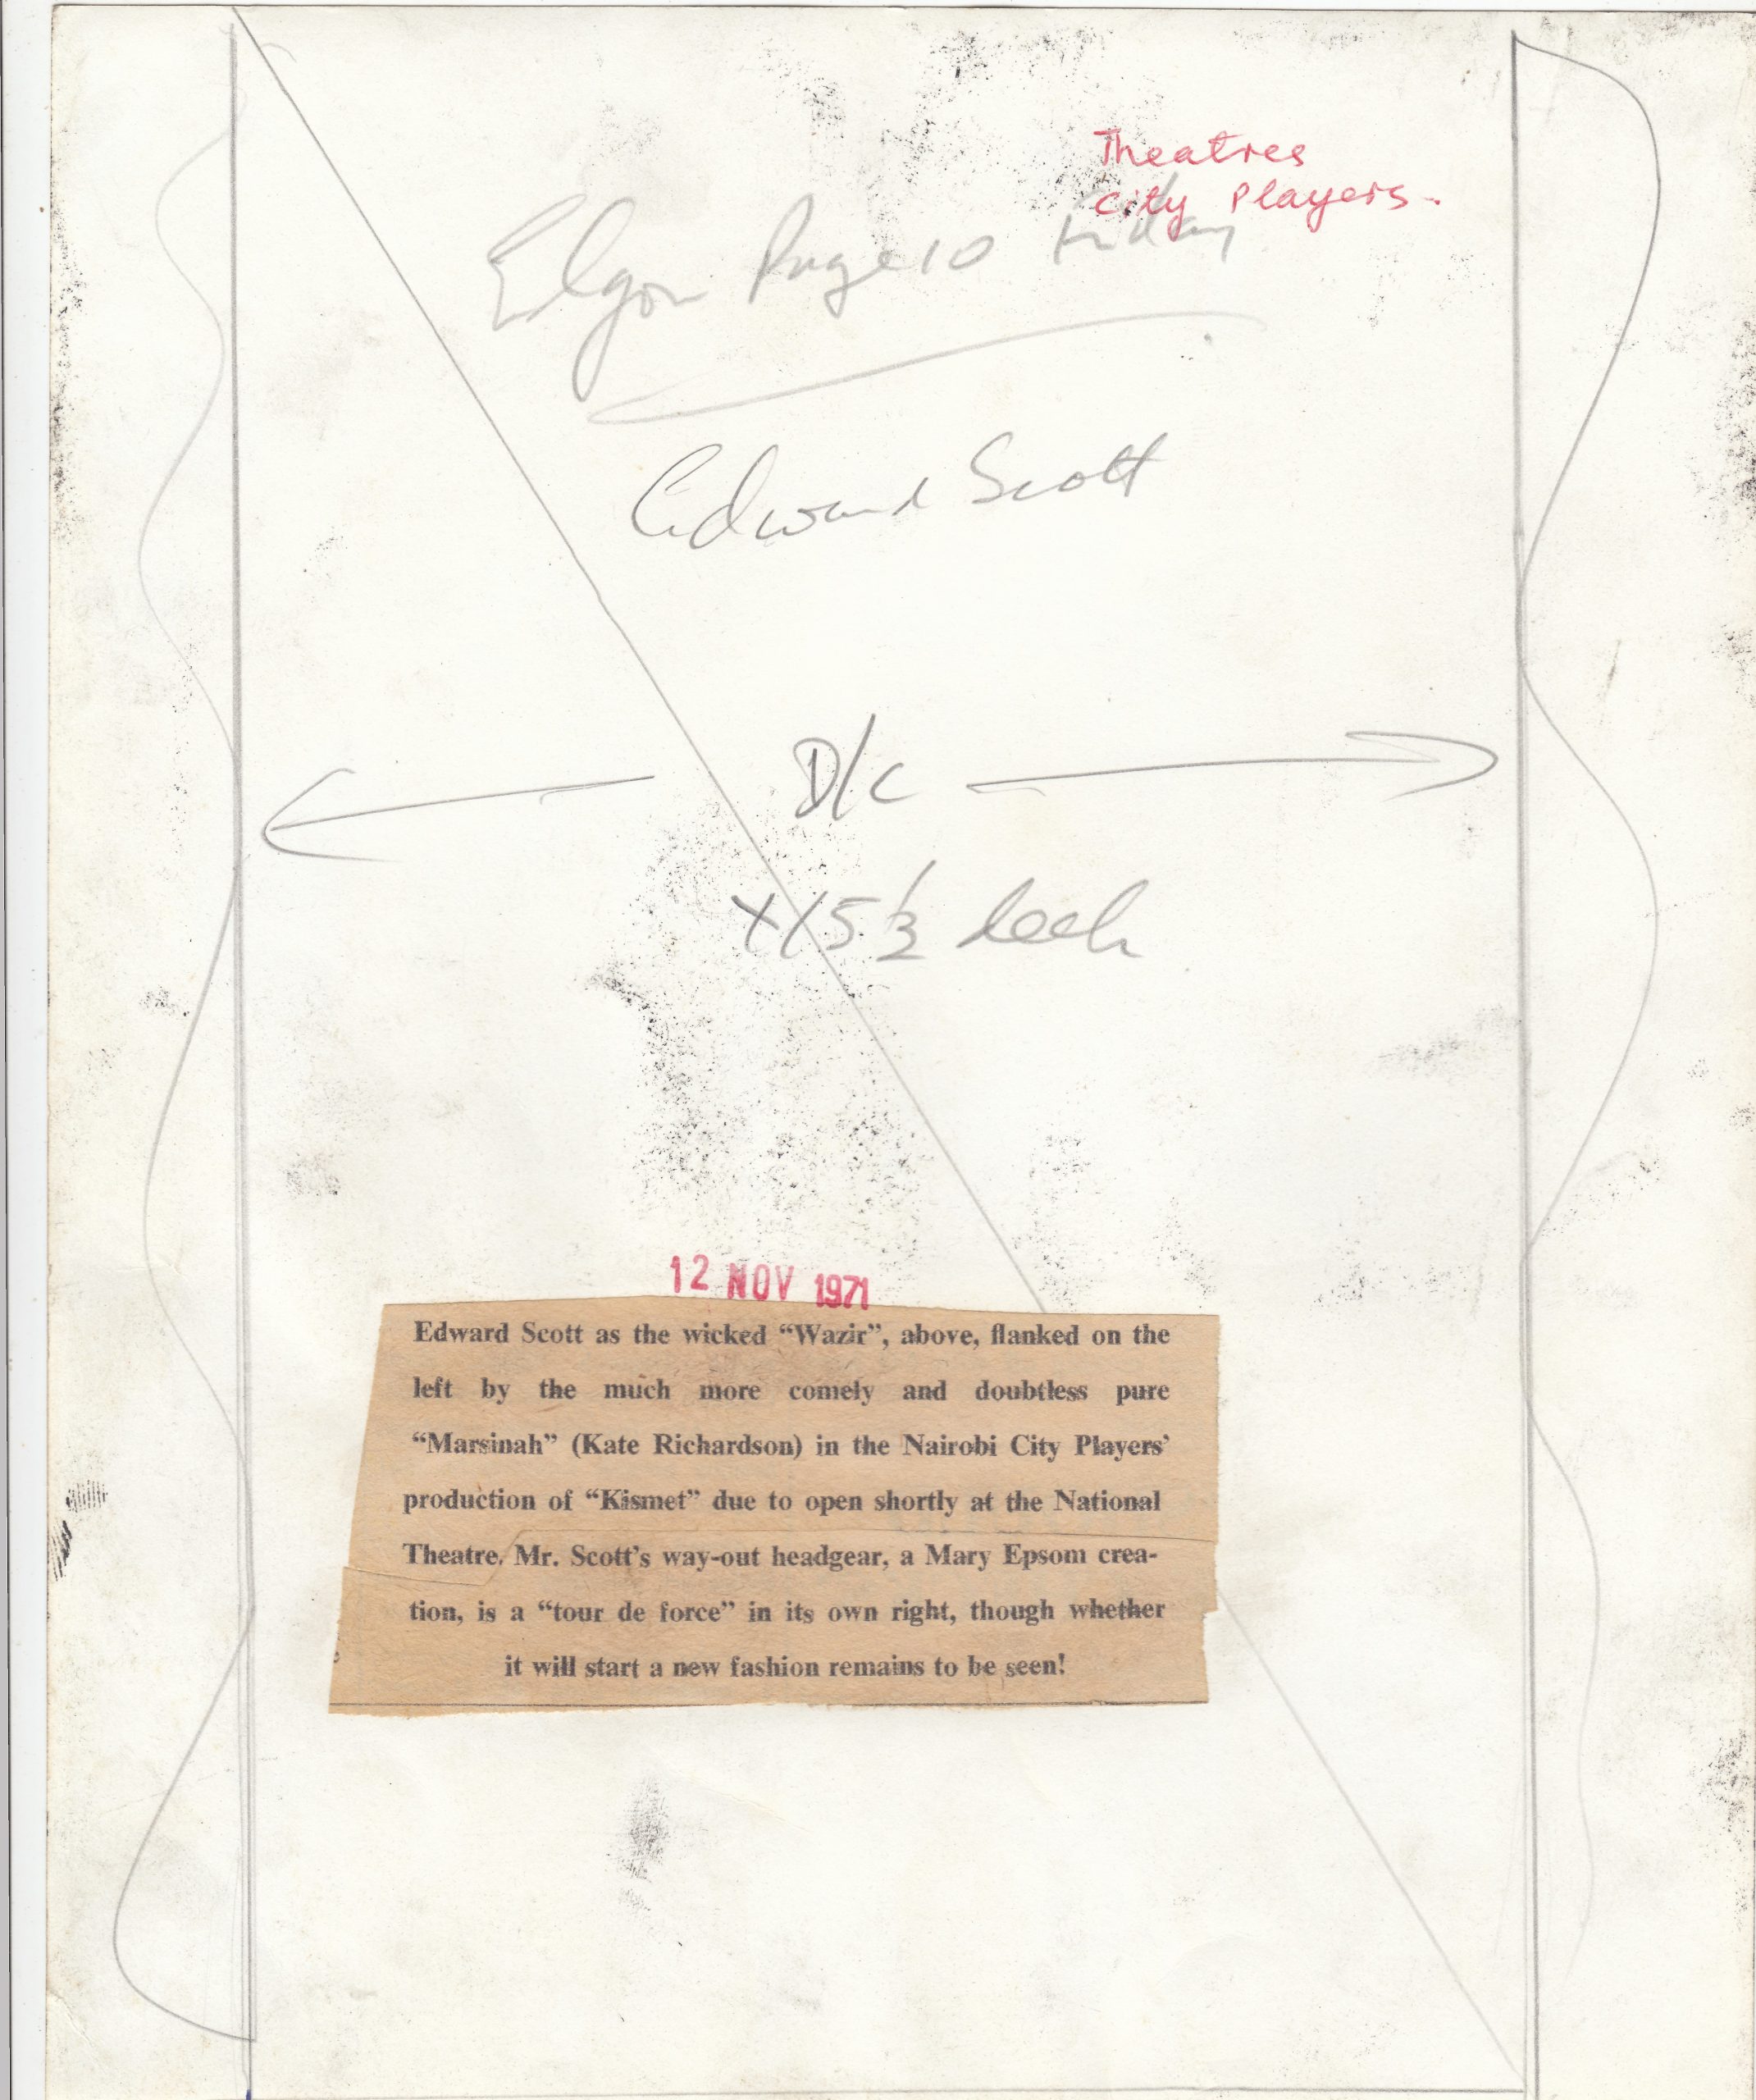 Theatres
City Players.
Elgon Page 10 Friday
Edward Scott
D/C
12 NOV 1971
Edward Scott as the wicked “Wazir”, above, flanked on the
left by the much more comely and doubtless pure
“Marsinah” (Kate Richardson) in the Nairobi City Players’
production of “Kismet” due to open shortly at the National
Theatre. Mr. Scott’s way-out headgear, a Mary Epsom crea-
tion, is a “tour de force” in its own right, though whether
it will start a new fashion remains to be seen!